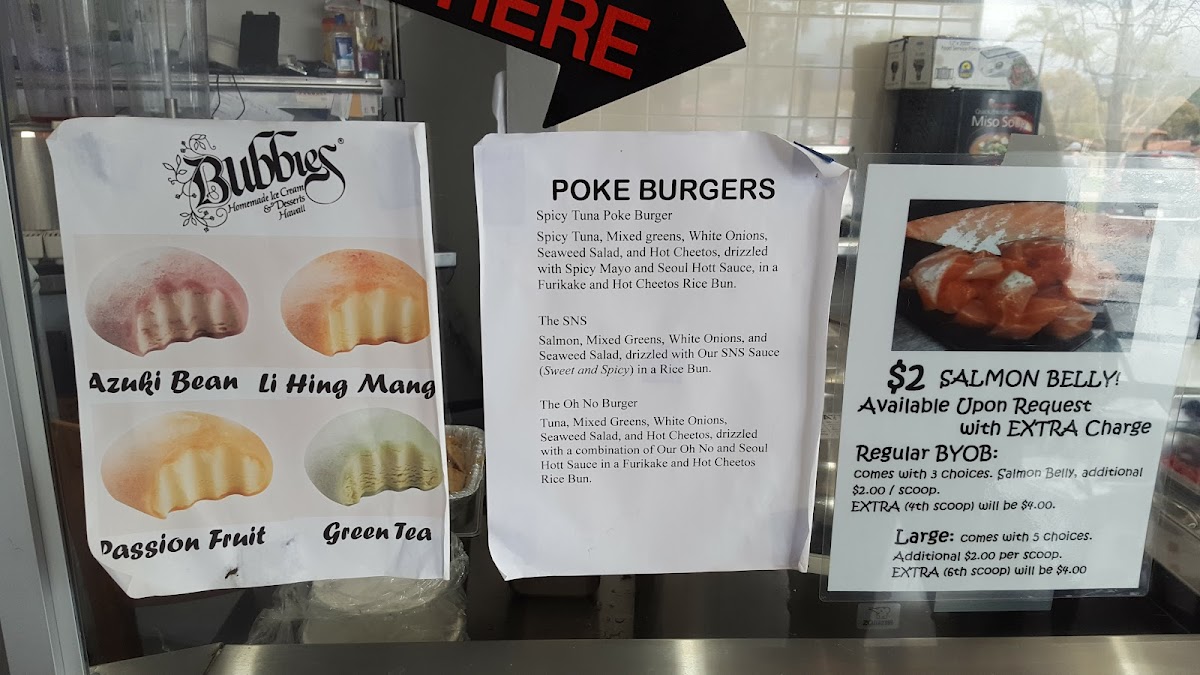 HERE
Bubbies®
Homemade Ice Cream
& Desserts
Hawaii
Azuki Bean
Li Hing Mang
Passion Fruit
Green Tea
POKE BURGERS
Spicy Tuna Poke Burger
Spicy Tuna, Mixed greens, White Onions,
Seaweed Salad, and Hot Cheetos, drizzled
with Spicy Mayo and Seoul Hott Sauce, in a
Furikake and Hot Cheetos Rice Bun.
The SNS
Salmon, Mixed Greens, White Onions, and
Seaweed Salad, drizzled with Our SNS Sauce
(Sweet and Spicy) in a Rice Bun.
The Oh No Burger
Tuna, Mixed Greens, White Onions,
Seaweed Salad, and Hot Cheetos, drizzled
with a combination of Our Oh No and Seoul
Hott Sauce in a Furikake and Hot Cheetos
Rice Bun.
Miso So
$2 SALMON BELLY!
Available Upon Request
with EXTRA Charge
Regular BYOB:
comes with 3 choices. Salmon Belly, additional
$2.00 / scoop.
EXTRA (4th scoop) will be $4.00.
Large: comes with 5 choices.
Additional $2.00 per scoop.
EXTRA (6th scoop) will be $4.00